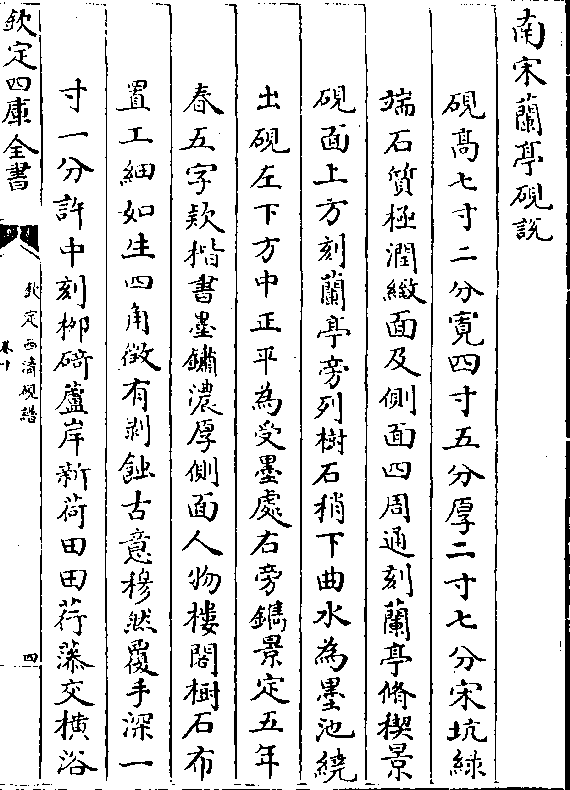 南宋蘭亭硯說
硯高七寸二分寛四寸五分厚二寸七分宋坑緑
端石質極潤緻面及側面四周通刻蘭亭脩禊景
硯面上方刻蘭亭旁列樹石稍下曲水為墨池繞
出硯左下方中正平為受墨處右旁鐫景定五年
春五字欵楷書墨鏽濃厚側面人物樓閣樹石布
置工細如生四角微有剥蝕古意穆然覆手深一
寸一分許中刻栁碕蘆岸新荷田田荇藻交横浴
欽定四庫全書
欽定西清硯譜
卷十
四